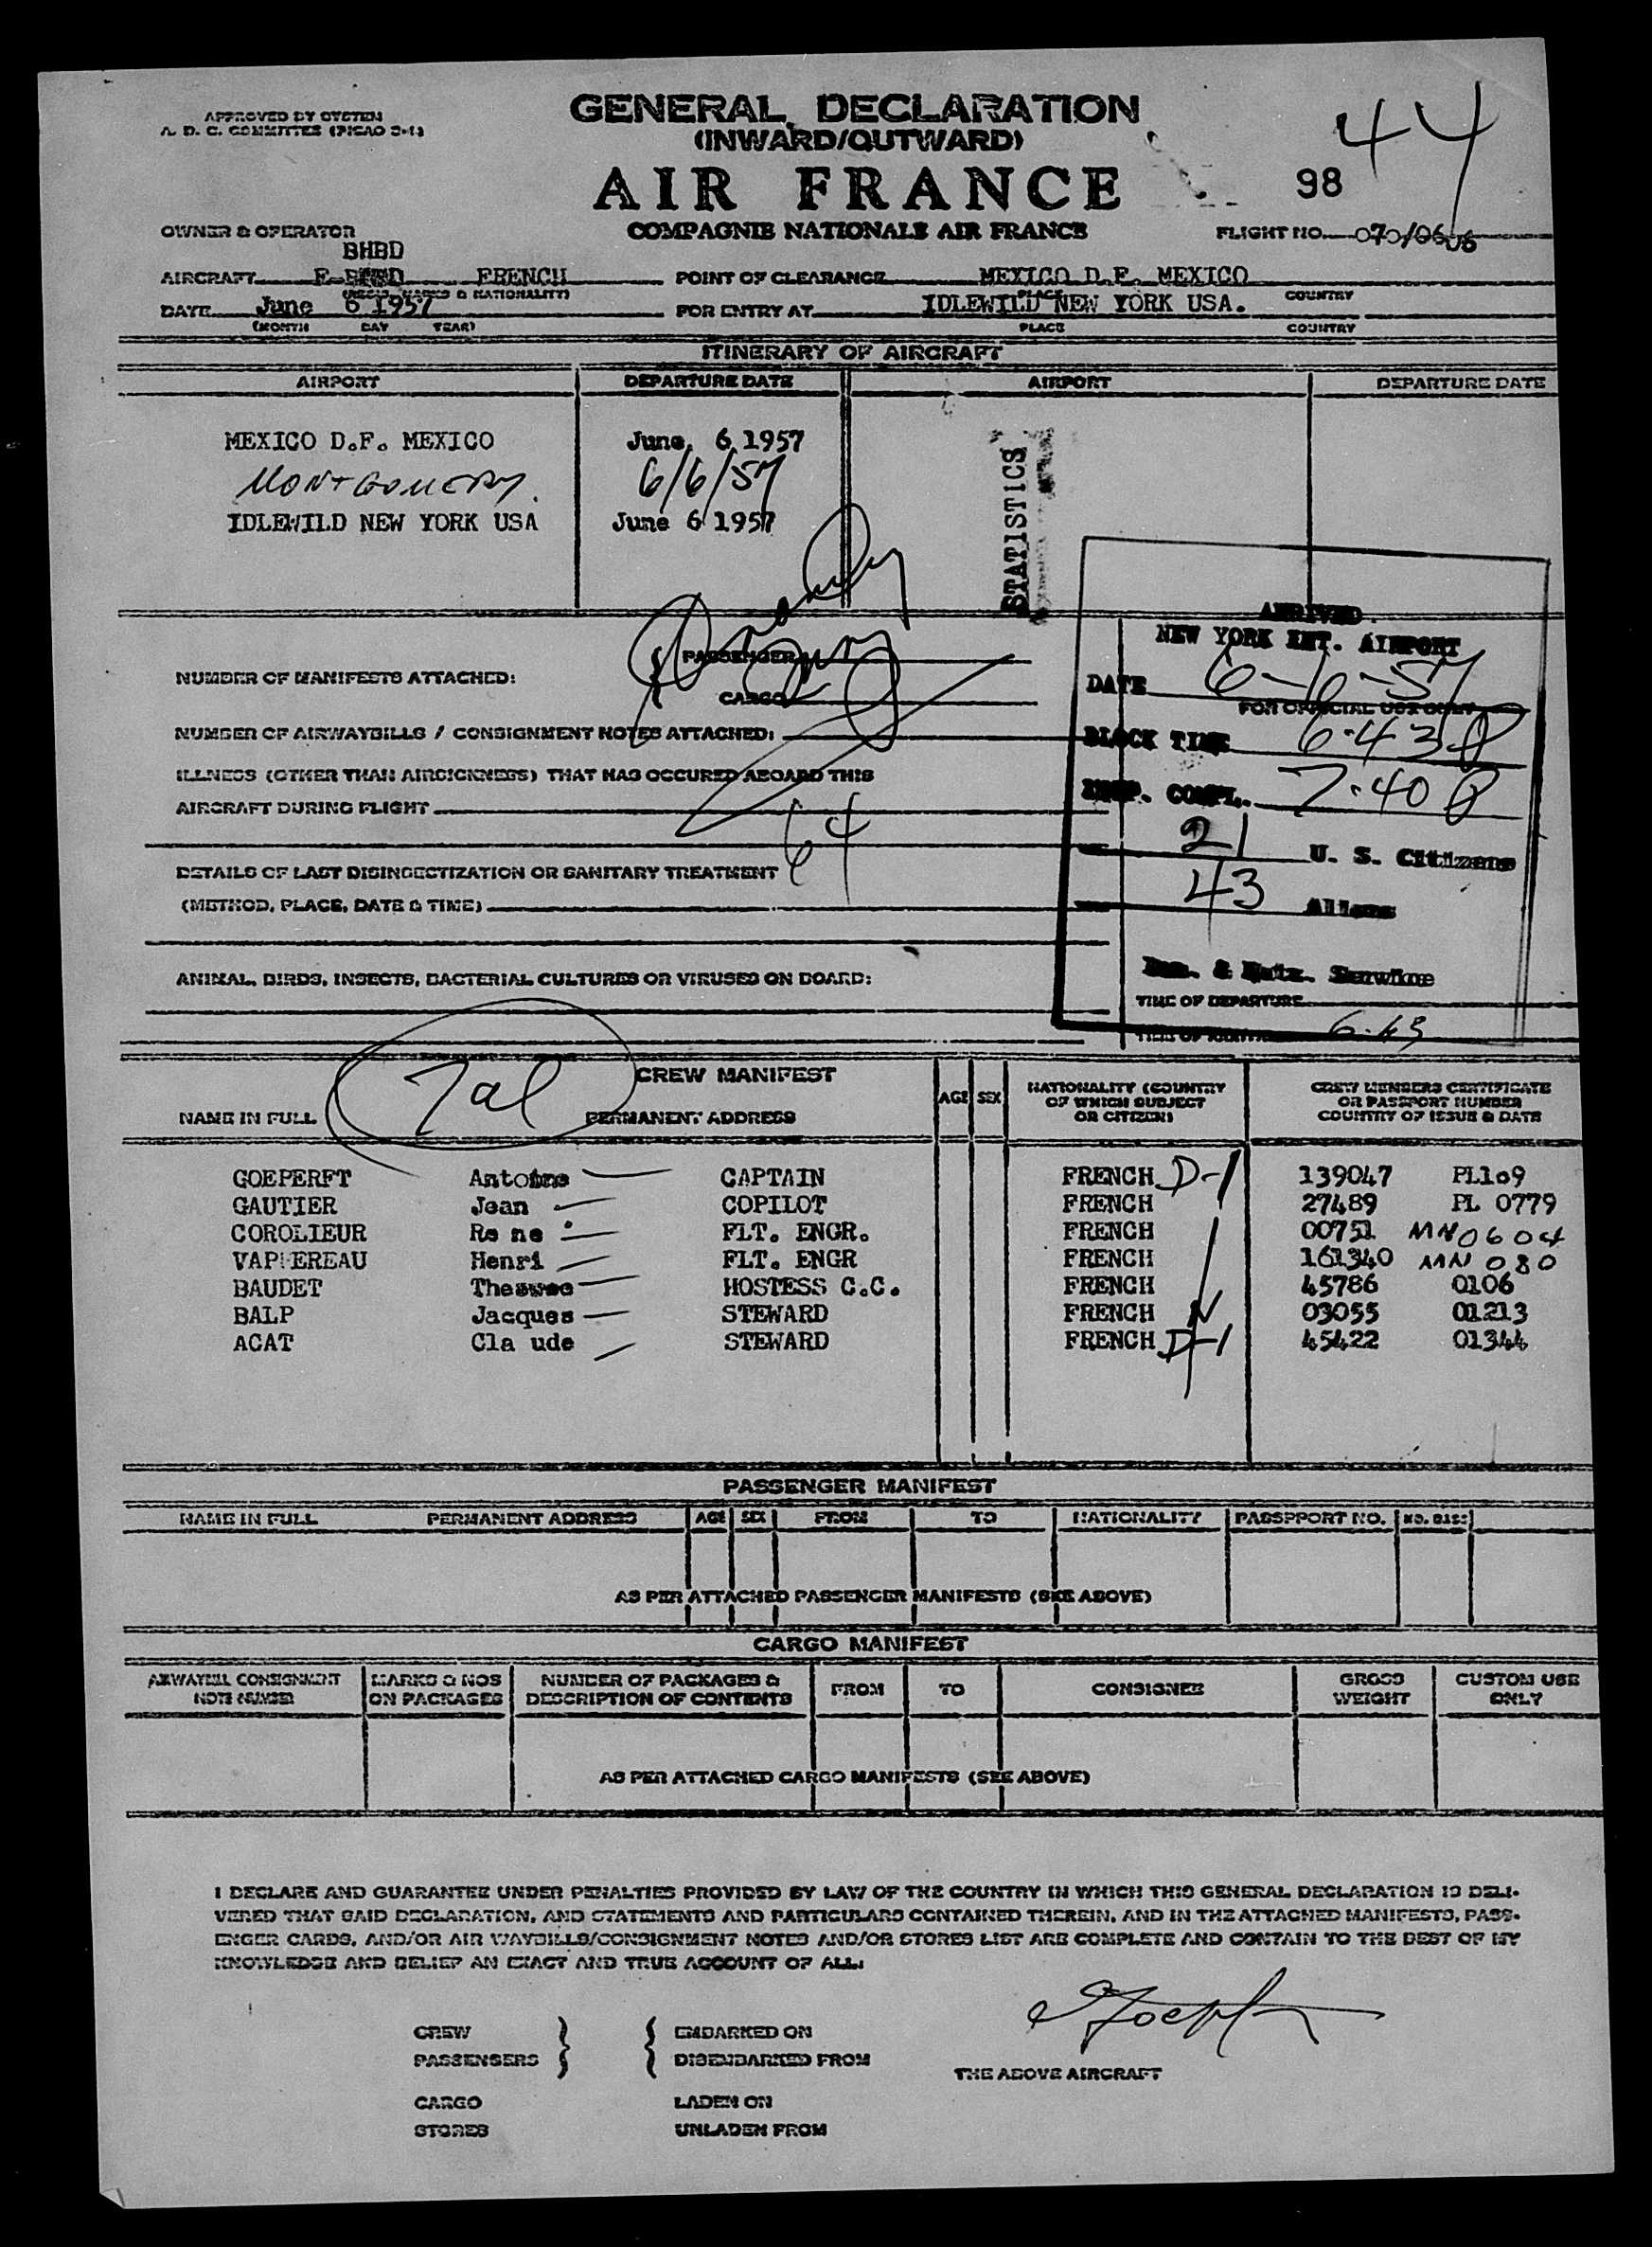 APPROVED BY SYSTEM
A. D. C. COMMITTEE (PICAO 2-1)
GENERAL DECLARATION
(INWARD/OUTWARD)
AIR FRANCE
COMPAGNIE NATIONALE AIR FRANCE
44
98
OWNER & OPERATOR
FLIGHT NO. 070/06
BHBD
AIRCRAFT F- FRENCH POINT OF CLEARANCE MEXICO D.F. MEXICO
& NATIONALITY) PLACE COUNTRY
DATE June 6 1957 FOR ENTRY AT IDLEWILD NEW YORK USA.
(MONTH DAY YEAR) PLACE COUNTRY
ITINERARY OF AIRCRAFT
AIRPORT DEPARTURE DATE AIRPORT DEPARTURE DATE
MEXICO D.F. MEXICO June, 6 1957
MONTGOMERY. 6/6/57
IDLEWILD NEW YORK USA June 6 1957
STATISTICS
ARRIVED
NEW YORK INT. AIRPORT
PASSENGER
NUMBER OF MANIFESTS ATTACHED:
CARGO
DATE 6-6-57
FOR OFFICIAL USE ONLY
NUMBER OF AIRWAYBILLS / CONSIGNMENT NOTES ATTACHED:
BLOCK TIME 6.43 P
ILLNESS (OTHER THAN AIRSICKNESS) THAT HAS OCCURED ABOARD THIS
AIRCRAFT DURING FLIGHT
INSP. COMPL. 7.40 P
64
21 U. S. Citizens
DETAILS OF LAST DISINSECTIZATION OR SANITARY TREATMENT
(METHOD, PLACE, DATE & TIME)
43 Aliens
ANIMAL, BIRDS, INSECTS, BACTERIAL CULTURES OR VIRUSES ON BOARD:
Imm. & Natz. Service
TIME OF DEPARTURE
TIME OF ARRIVAL 6.43
CREW MANIFEST
NAME IN FULL PERMANENT ADDRESS AGE SEX NATIONALITY (COUNTRY OF WHICH SUBJECT OR CITIZEN) CREW MEMBERS CERTIFICATE OR PASSPORT NUMBER COUNTRY OF ISSUE & DATE
GOEPERFT Antoine CAPTAIN FRENCH D-1 139047 PL109
GAUTIER Jean COPILOT FRENCH 27489 PL 0779
COROLIEUR Re ne FLT. ENGR. FRENCH 00751 MN0604
VAPEREAU Henri FLT. ENGR FRENCH 161340 MN 080
BAUDET HOSTESS C.C. FRENCH 45786 0106
BALP Jacques STEWARD FRENCH 03055 01213
ACAT Cla ude STEWARD FRENCH D-1 45422 01344
PASSENGER MANIFEST
NAME IN FULL PERMANENT ADDRESS AGE SEX FROM TO NATIONALITY PASSPPORT NO.
AS PER ATTACHED PASSENGER MANIFESTS (SEE ABOVE)
CARGO MANIFEST
AIRWAYBILL CONSIGNMENT NOTE NUMBER MARKS & NOS ON PACKAGES NUMBER OF PACKAGES & DESCRIPTION OF CONTENTS FROM TO CONSIGNEE GROSS WEIGHT CUSTOM USE ONLY
AS PER ATTACHED CARGO MANIFESTS (SEE ABOVE)
I DECLARE AND GUARANTEE UNDER PENALTIES PROVIDED BY LAW OF THE COUNTRY IN WHICH THIS GENERAL DECLARATION IS DELI-
VERED THAT SAID DECLARATION, AND STATEMENTS AND PARTICULARS CONTAINED THEREIN, AND IN THE ATTACHED MANIFESTS, PASS-
ENGER CARDS, AND/OR AIR WAYBILLS/CONSIGNMENT NOTES AND/OR STORES LIST ARE COMPLETE AND CONTAIN TO THE BEST OF MY
KNOWLEDGE AND BELIEF AN EXACT AND TRUE ACCOUNT OF ALL:
CREW EMBARKED ON
PASSENGERS DISEMBARKED FROM
THE ABOVE AIRCRAFT
CARGO LADEN ON
STORES UNLADEN FROM